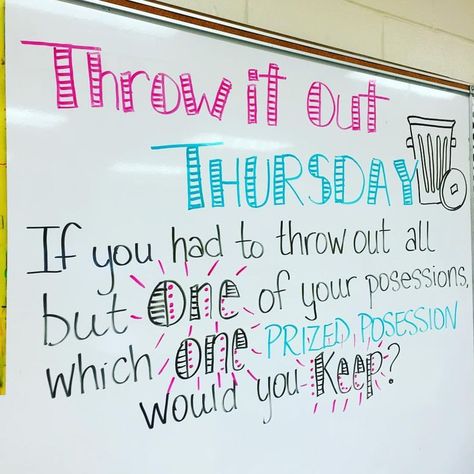 Throw it out
THURSDAY
If you had to throw out all
but one of your posessions,
which one PRIZED POSESSION
would you keep?